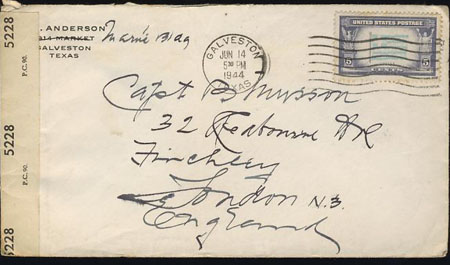 5228
P.C. 90.
5228
P.C. 90.
5228
. ANDERSON
MARKET
GALVESTON
TEXAS
Bldg
GALVESTON
JUN 14
5 30 PM
1944
TEXAS
UNITED STATES POSTAGE
5 5
Capt P Musson
32 Redbourne Ave
Finchley
London N.3.
England